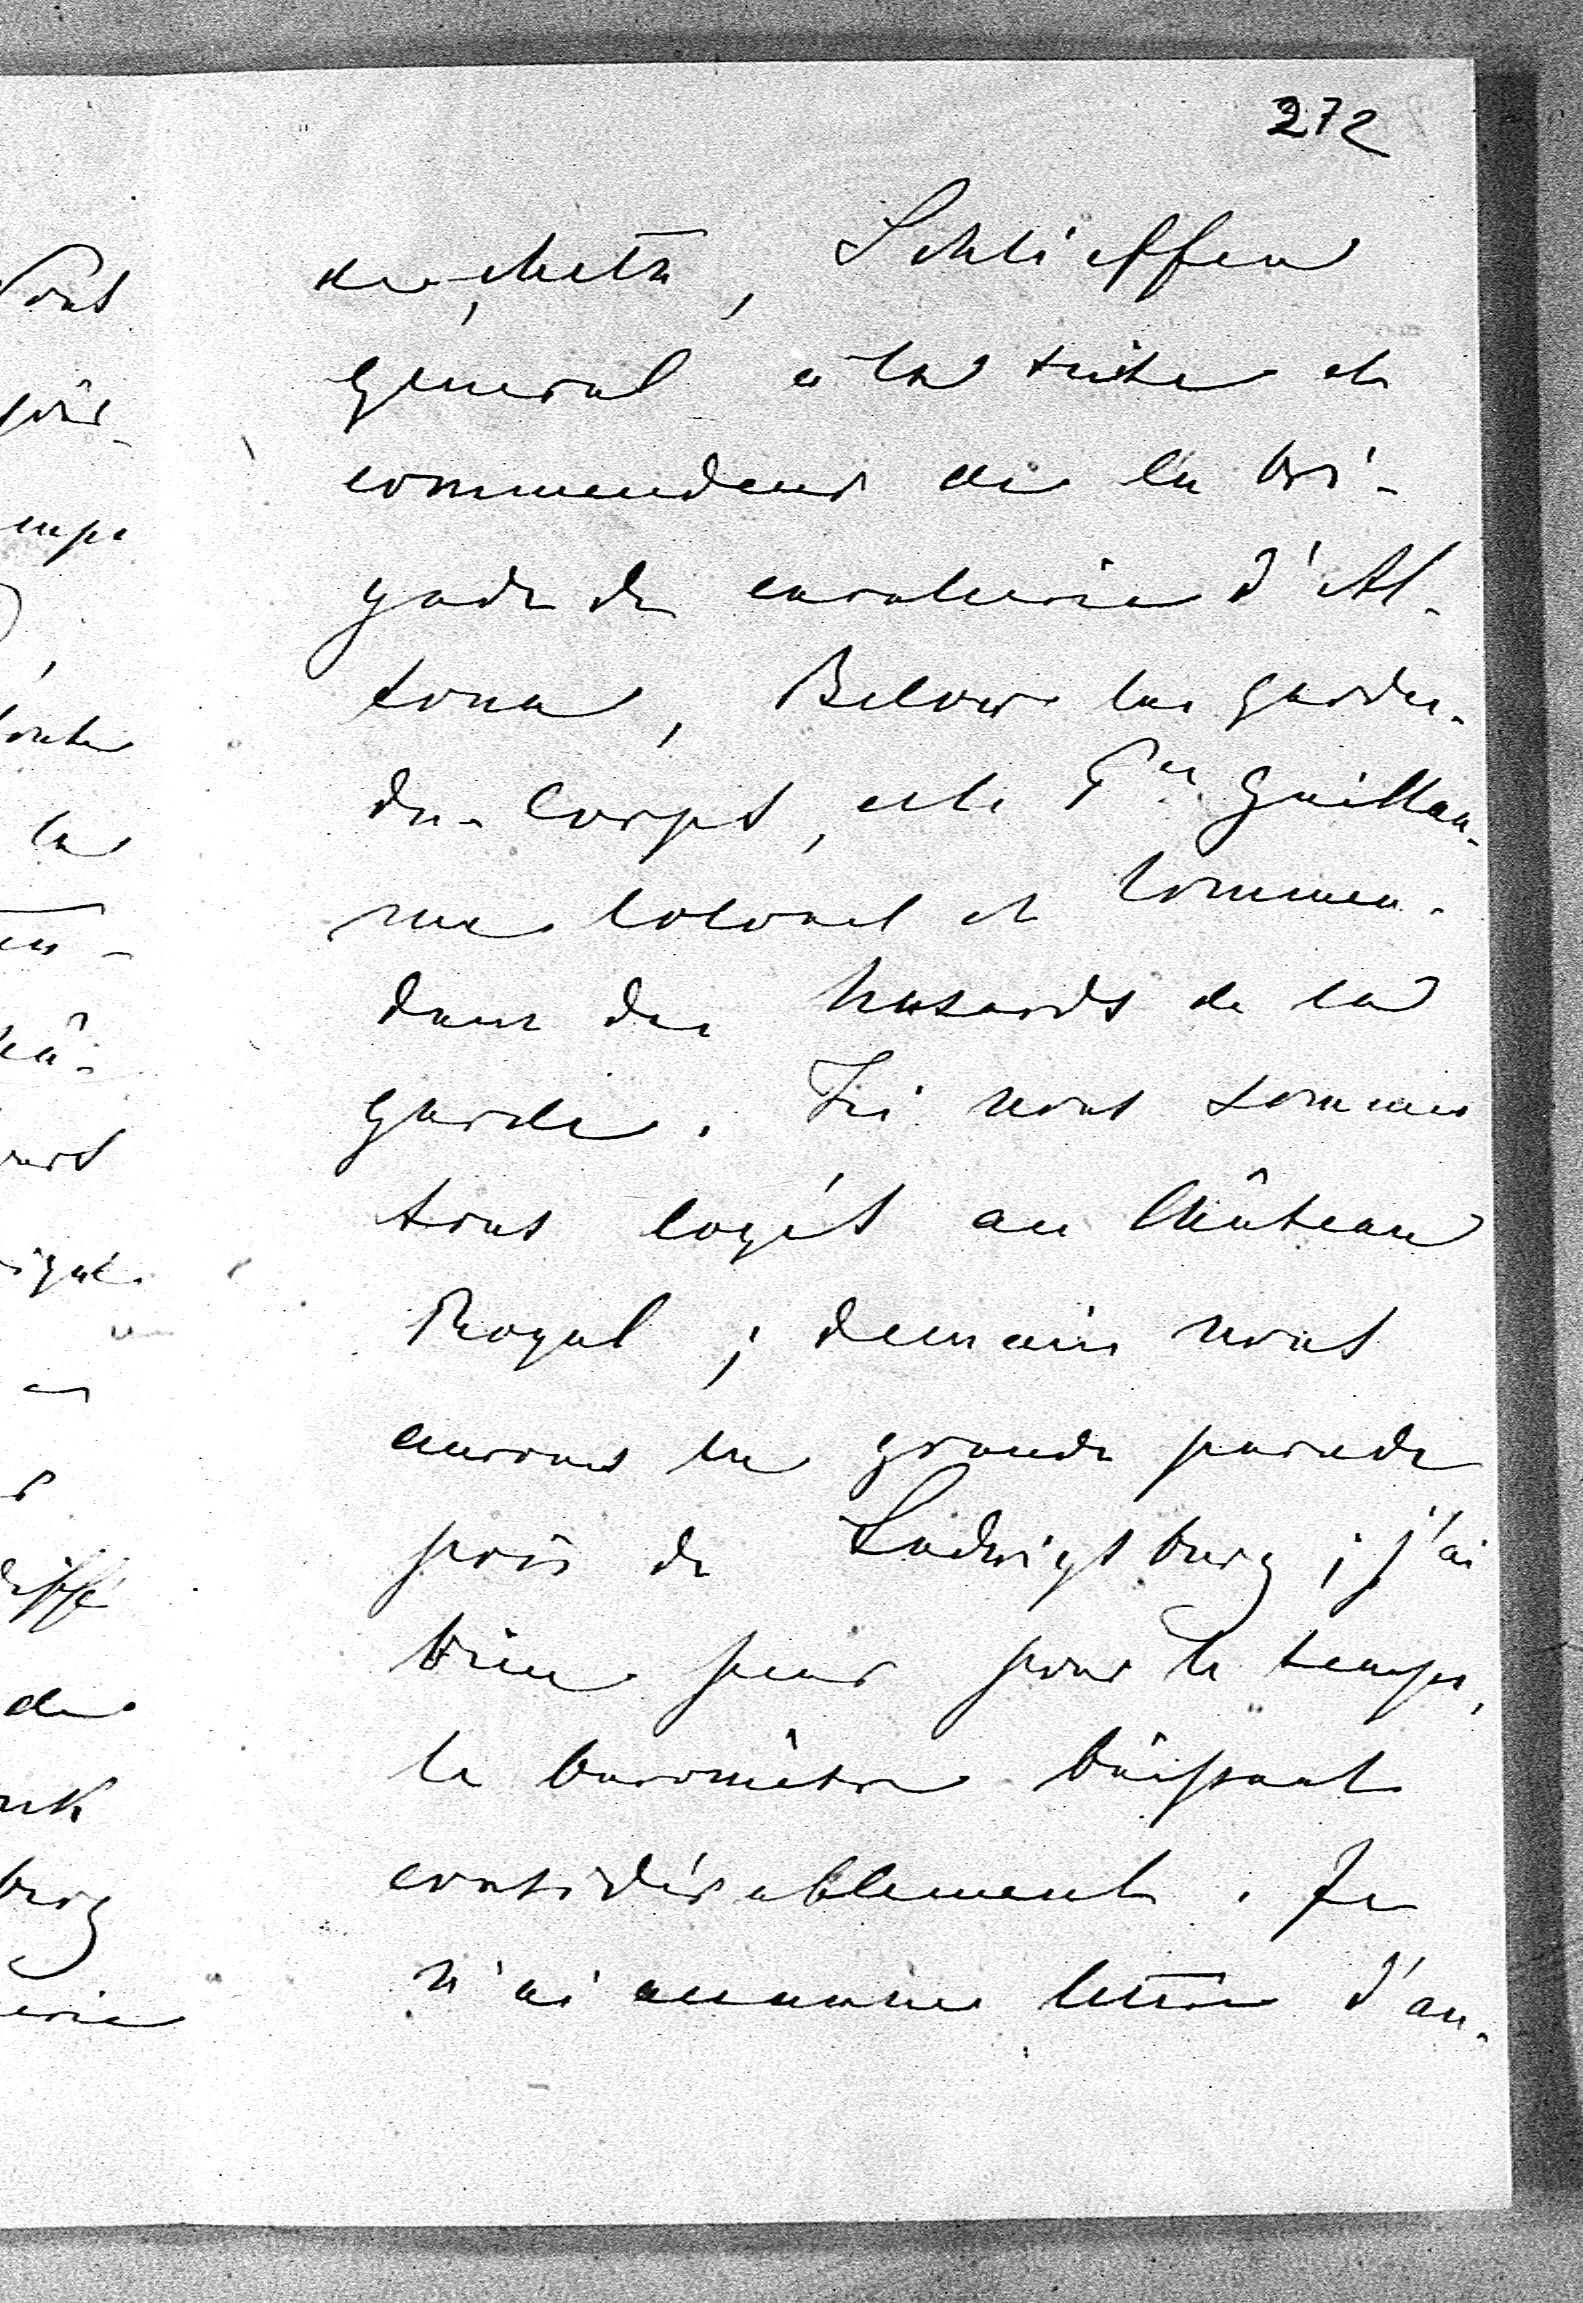 272
Schlieffen
général à la suite et
commendeur de la bri-
gade de cavalerie d'Al-
tona, Below les gardes-
du-Corps, et le Pce Guillau-
me Colonel et Commen-
deur des husards de la
garde. Ici nous sommes
tous logés au Château
Royal ; demain nous
aurons la grande parade
près de Ludwigsburg ; j'ai
bien peur pour le temps,
le baromètre baissant
considérablement. Je
n'ai aucune lettre d'au-